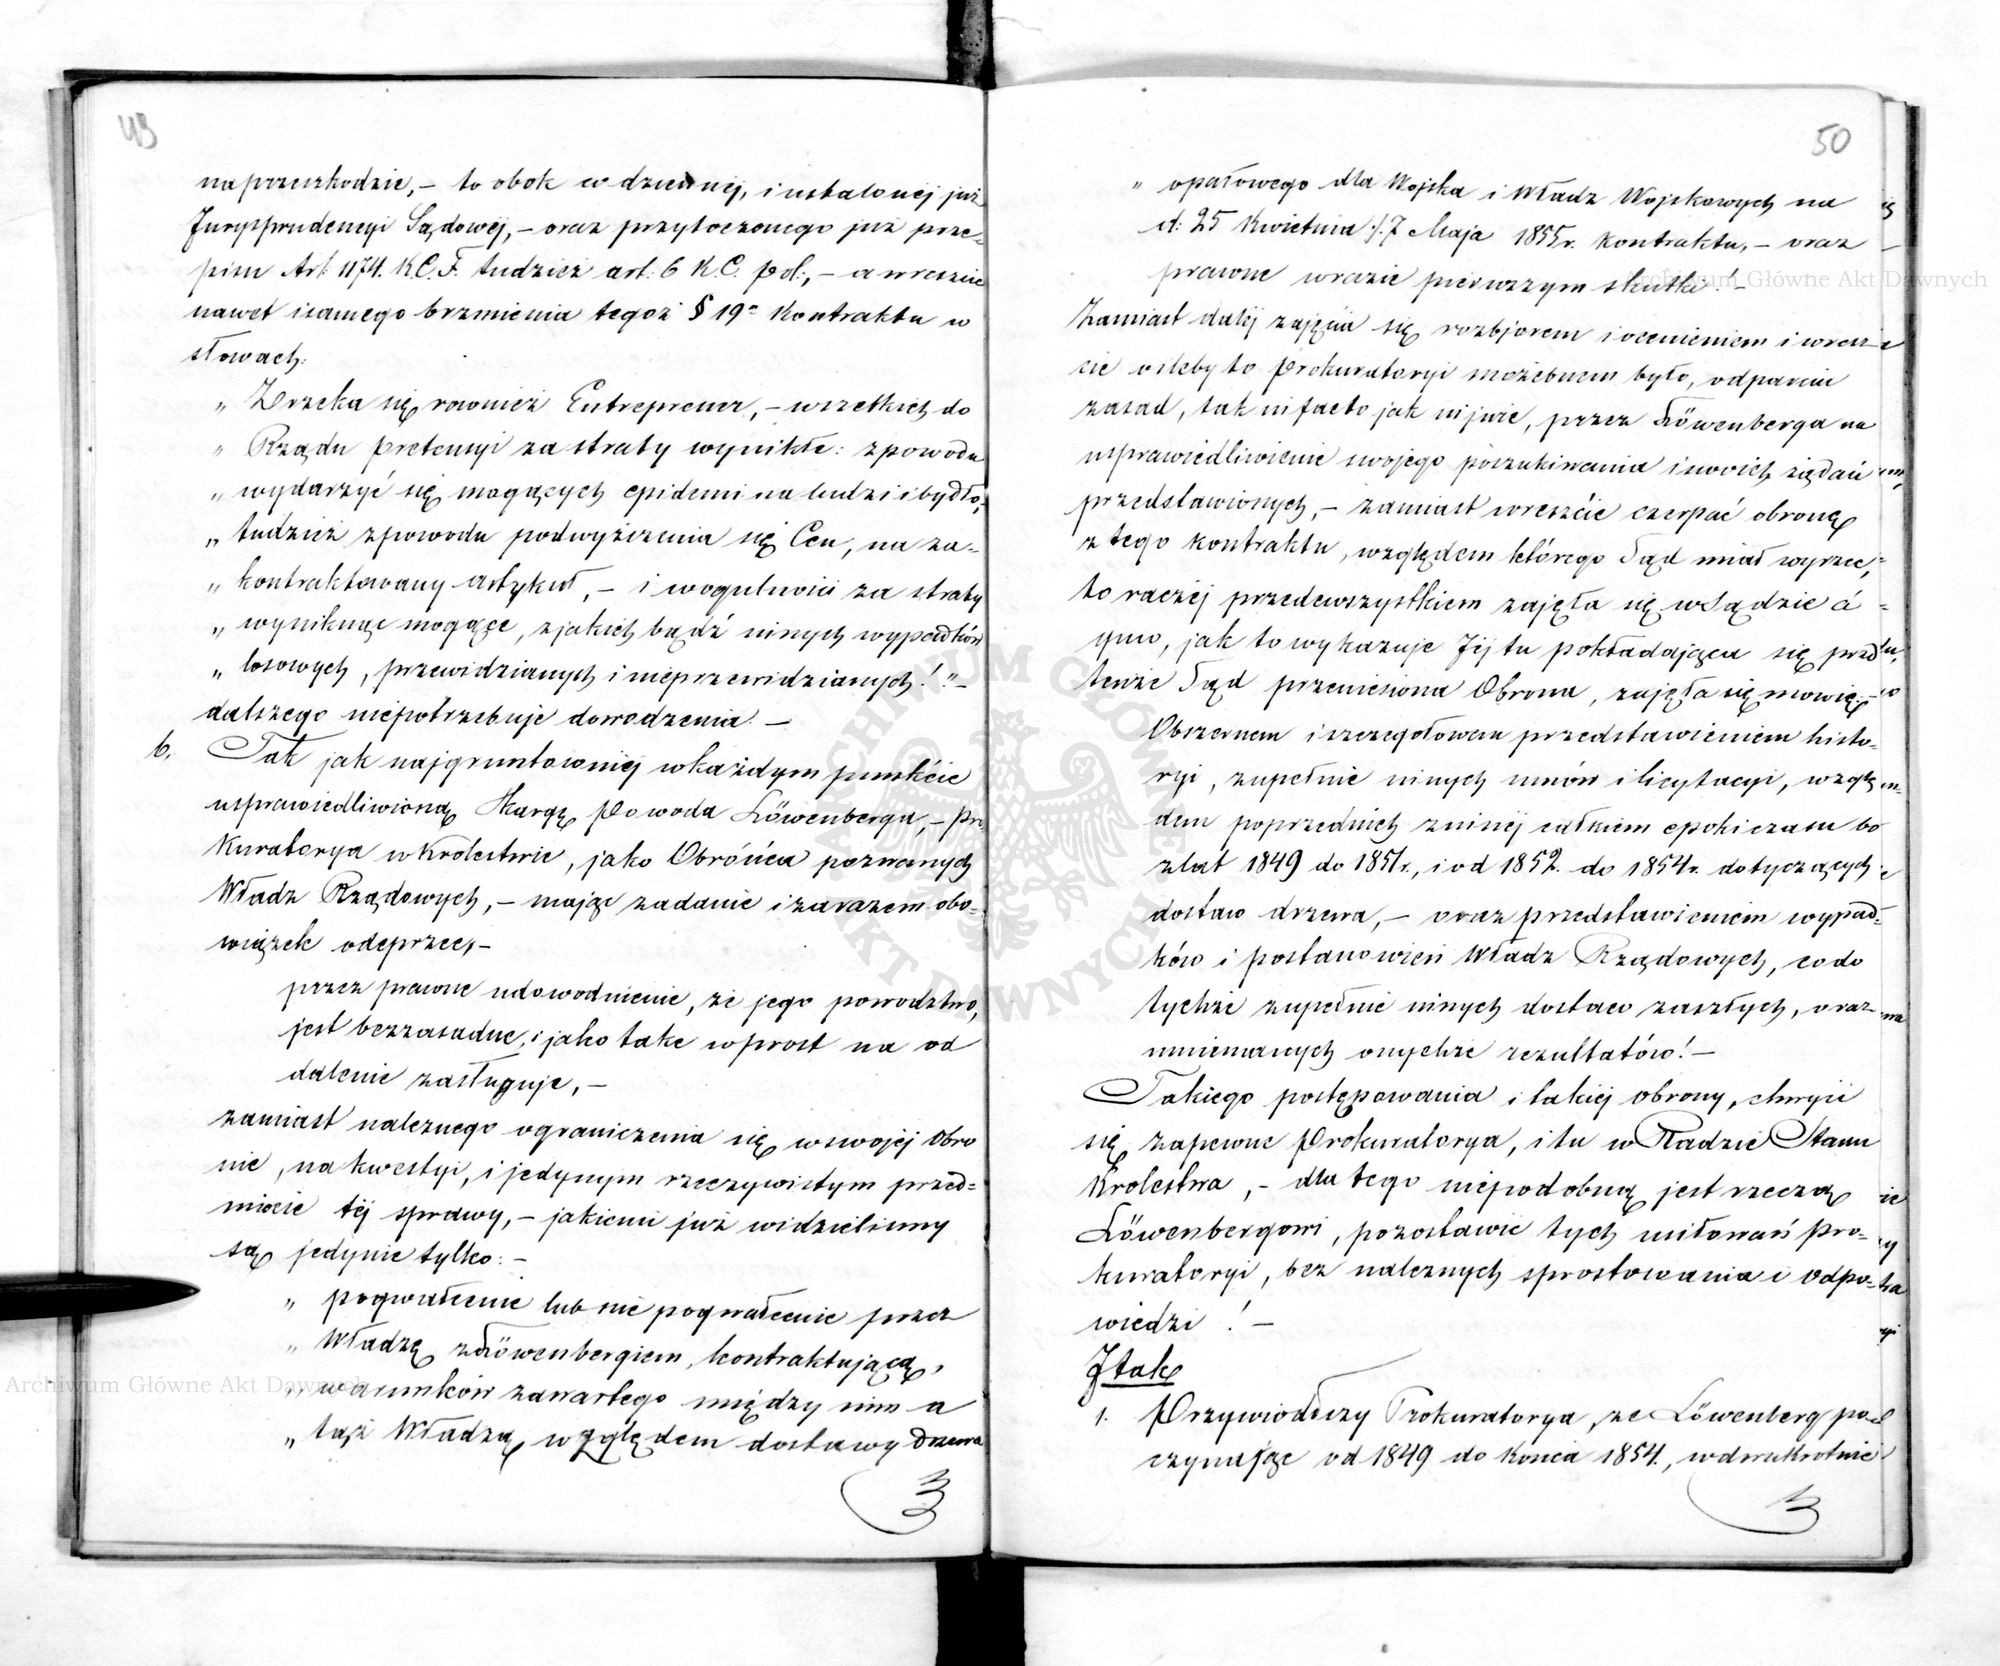 49
na przeszkodzie, – to obok codziennéj, i ustalonéj już
Jurysprudencyi Sądowéj, – oraz przytoczonego już prze-
pisu Art: 1174. K.C.F. tudzież art: 6 K.C. Pol:, – a wreszcie
nawet i samego brzmienia tegoż § 19º Kontraktu w
słowach:
„ Zrzeka się rownież Entreprener, – wszelkich do
„ Rządu pretensyi za straty wynikłe: z powodu
„ wydarzyć się mogących epidemi na ludzi i bydło,
„ tudzież z powodu podwyższenia się Cen, na za-
„ kontraktowany artykuł, – i w ogulności za straty
„ wyniknąć mogące, z jakich bądź innych wypadków
„ losowych, przewidzianych i nieprzewidzianych! " –
dalszego niepotrzebuje dowodzenia. –
6. Tak jak najgruntowniéj w każdym punkcie
usprawiedliwioną Skargę Powoda Löwenberga, – Pro
kuratorya w Krolestwie, jako Obrońca pozwanych
Władz Rządowych, – mając zadanie i zarazem obo-
wiązek odeprzeć, –
przez prawne udowodnienie, że jego powodztwo,
jest bezzasadne, i jako take wprost na od
dalenie zasługuje, –
zamiast należnego ograniczenia się w swojéj obro
nie, na kwestyi, i jedynym rzeczywistym przed-
miocie téj sprawy, – jakiemi już widzieliśmy
są jedynie tylko: –
„ pogwałcenie lub nie pogwałcenie przez
„ Władzę z Löwenbergiem, kontraktującą,
„ warunków zawartego między nim a
„ tąż Władzą względem dostawy drzewa
50
„ opałowego dla Wojska i Władz Wojskowych na
d: 25 Kwietnia /: 7 Maja 1855 r. kontraktu, – oraz
prawne w razie pierwszym skutki! –
Zamiast daléj zajęcia się rozbiorem i ocenieniem i wresz-
cie o ileby to Prokuratoryi możebnem było, odparciu
zasad, tak in facto jak in jure, przez Löwenberga na
usprawiedliwienie swojego poszukiwania i swoich żądań
przedstawionych, – zamiast wreszcie czerpać obronę
z tego kontraktu, względem którego Sąd miał wyrzec,
to raczéj przedewszystkiem zajęła się w Sądzie á
quo, jak to wykazuje Jéj tu pokładająca się przed
tenże Sąd przeniesiona Obrona, zajęła się mowię: –
Obszernem i szczegołowem przedstawieniem histo-
ryi, zupełnie innych umów i licytacyi, wzglę
dem poprzednich z innéj całkiem epoki czasu bo
z lat 1849 do 1851 r., i od 1852. do 1854 r. dotyczących
dostaw drzewa, – oraz przedstawieniem wypad-
ków i postanowień Władz Rządowych, co do
tychże zupełnie innych dostaw zaszłych, oraz
mniemanych onychże rezultatów! –
Takiego postępowania i takiéj obrony, chwyci
się zapewne Prokuratorya, i tu w Radzie Stanu
Krolestwa, – dla tego niepodobną jest rzeczą
Löwenbergowi, pozostawić tych usiłowań Pro-
kuratoryi, bez należnych sprostowania i odpo-
wiedzi! –
I tak
1. Przywiodłszy Prokuratorya, że Löwenberg po
czynając od 1849 do końca 1854., w dwukrotnie
Archiwum Główne Akt Dawnych
Archiwum Główne Akt Dawnych
ARCHIWUM GŁÓWNE AKT DAWNYCH